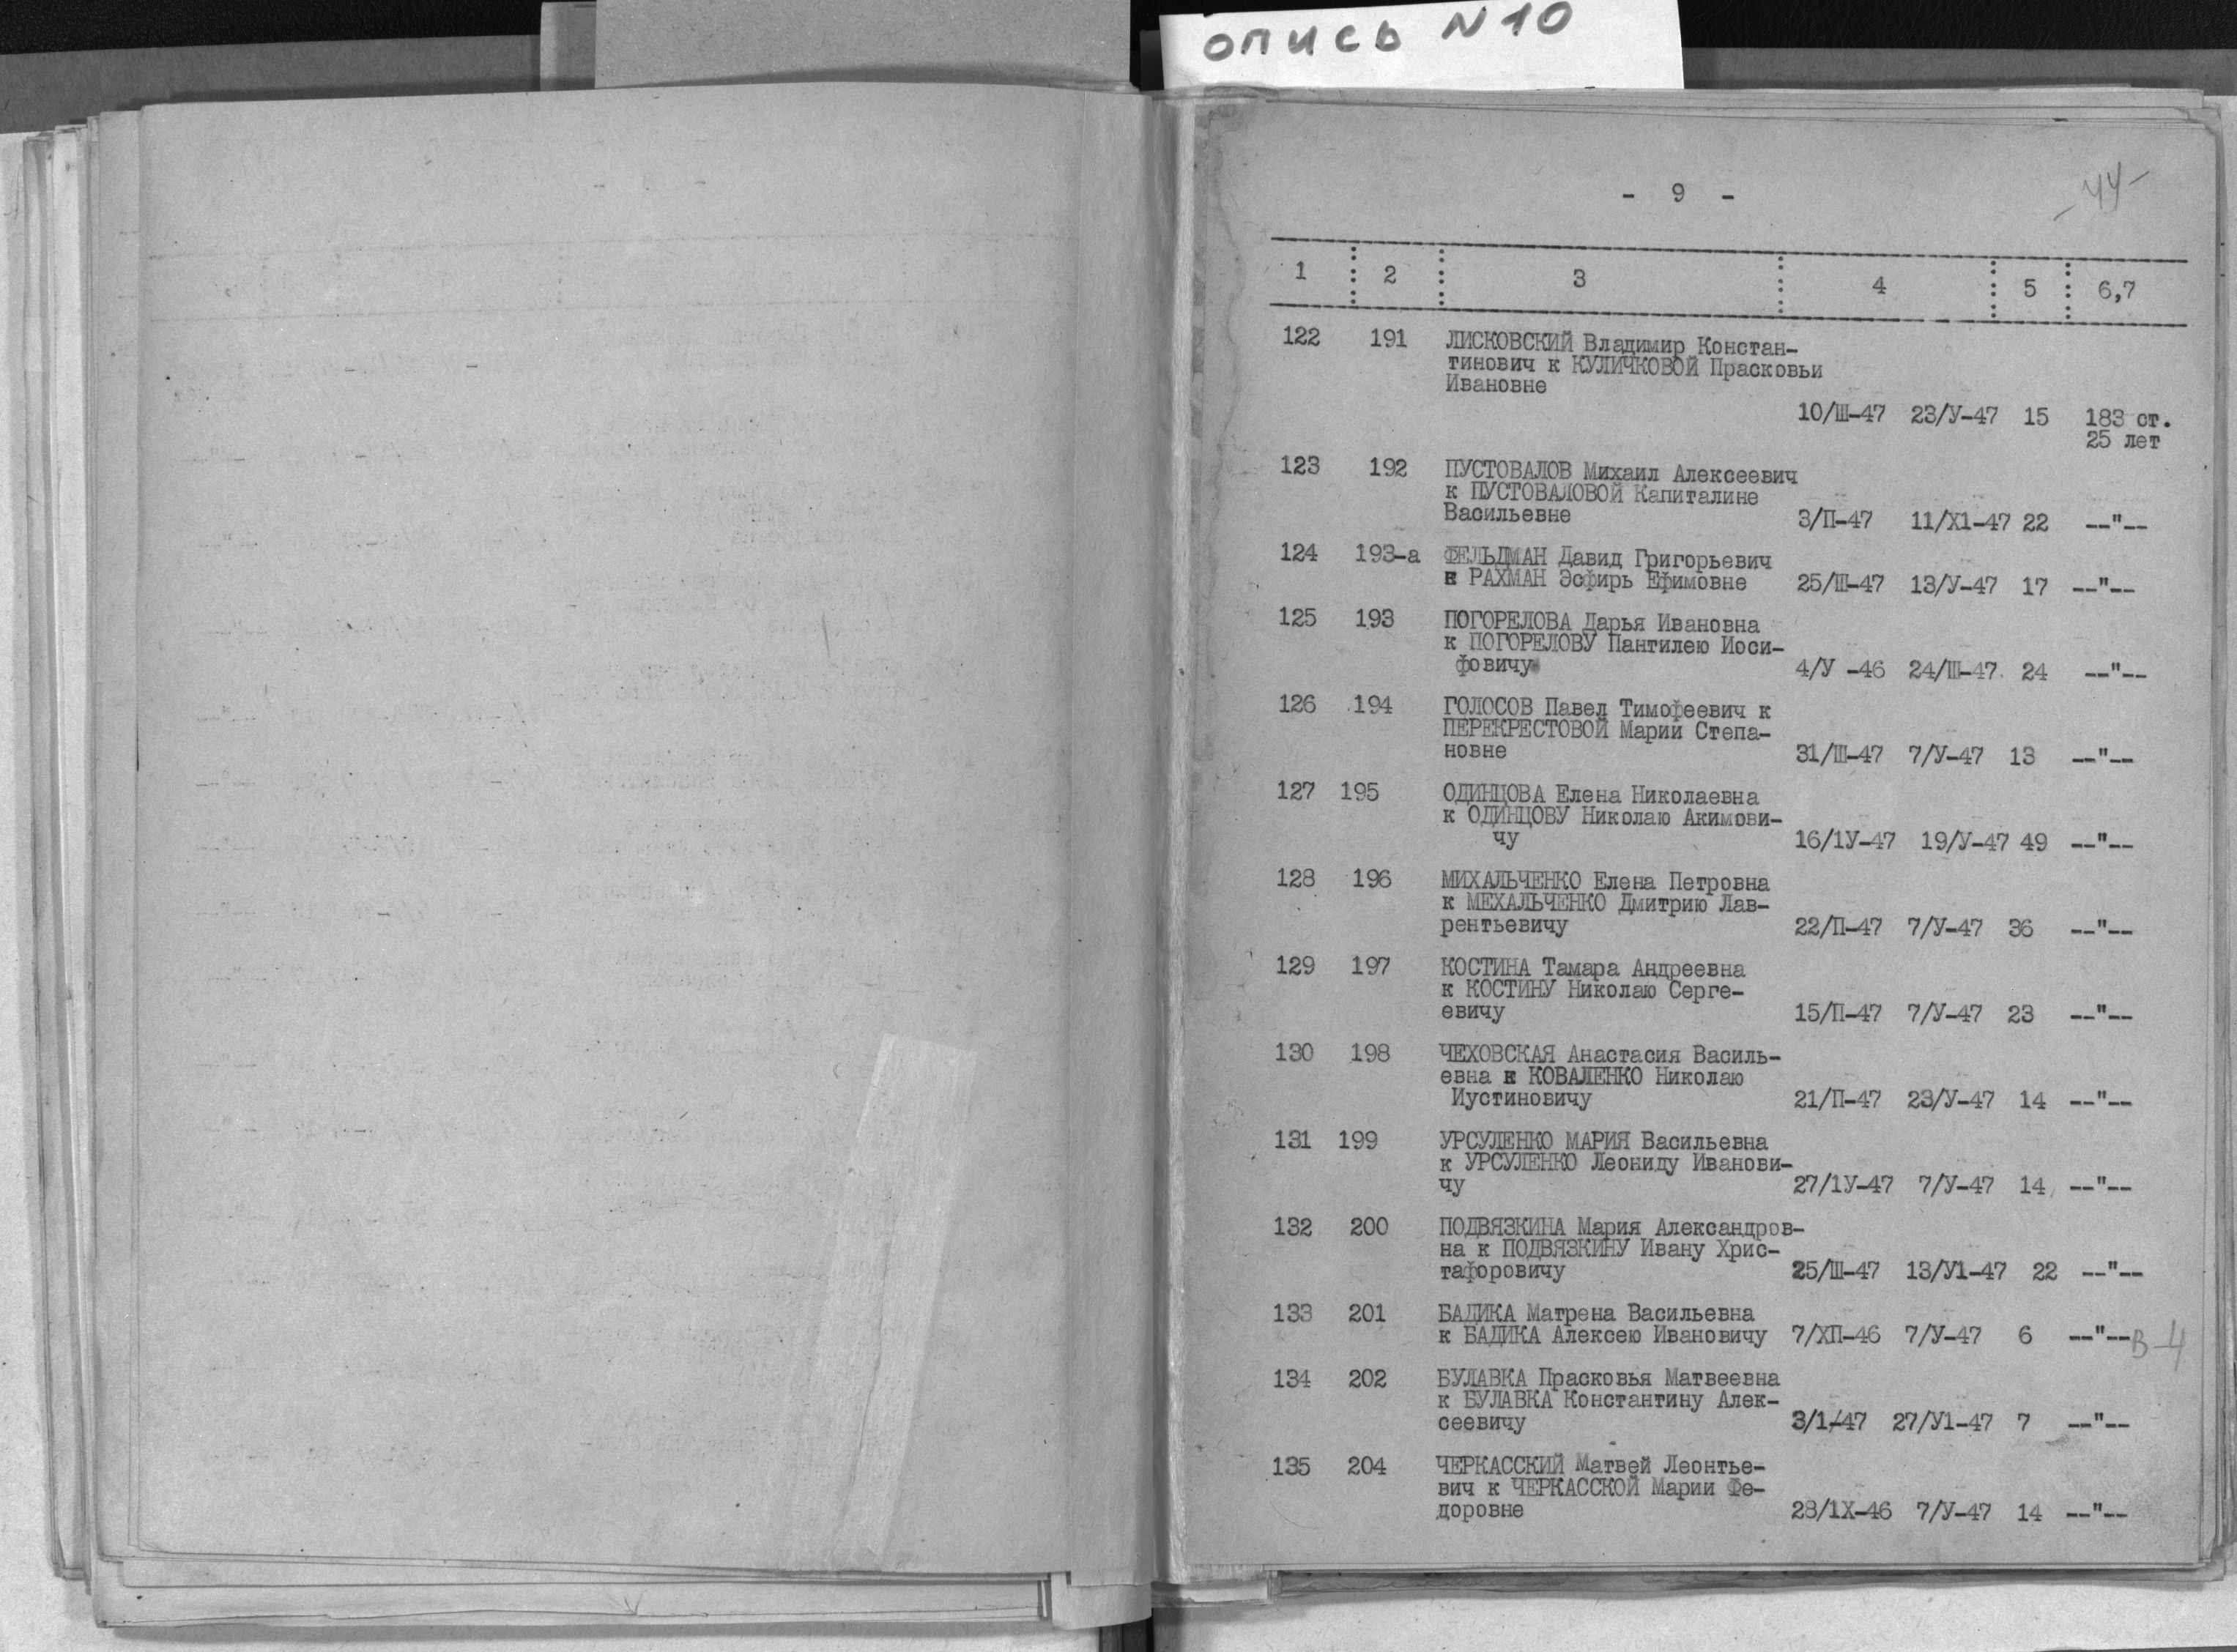 опись №10
- 9 -
1 2 3 4 5 6,7
122 191 ЛИСКОВСКИЙ Владимир Констан-
тинович к КУЛИЧКОВОЙ Прасковьи
Ивановне
10/Ш-47 23/У-47 15 183 ст.
25 лет
123 192 ПУСТОВАЛОВ Михаил Алексеевич
к ПУСТОВАЛОВОЙ Капиталине
Васильевне 3/П-47 11/Х1-47 22 --"--
124 193-а ФЕЛЬДМАН Давид Григорьевич
к РАХМАН Эсфирь Ефимовне 25/Ш-47 13/У-47 17 --"--
125 193 ПОГОРЕЛОВА Дарья Ивановна
к ПОГОРЕЛОВУ Пантилею Иоси-
фовичу 4/У -46 24/Ш-47 24 --"--
126 194 ГОЛОСОВ Павел Тимофеевич к
ПЕРЕКРЕСТОВОЙ Марии Степа-
новне 31/Ш-47 7/У-47 13 --"--
127 195 ОДИНЦОВА Елена Николаевна
к ОДИНЦОВУ Николаю Акимови-
чу 16/1У-47 19/У-47 49 --"--
128 196 МИХАЛЬЧЕНКО Елена Петровна
к МЕХАЛЬЧЕНКО Дмитрию Лав-
рентьевичу 22/П-47 7/У-47 36 --"--
129 197 КОСТИНА Тамара Андреевна
к КОСТИНУ Николаю Серге-
евичу 15/П-47 7/У-47 23 --"--
130 198 ЧЕХОВСКАЯ Анастасия Василь-
евна к КОВАЛЕНКО Николаю
Иустиновичу 21/П-47 23/У-47 14 --"--
131 199 УРСУЛЕНКО МАРИЯ Васильевна
к УРСУЛЕНКО Леониду Иванови-
чу 27/1У-47 7/У-47 14 --"--
132 200 ПОДВЯЗКИНА Мария Александров-
на к ПОДВЯЗКИНУ Ивану Хрис-
тафоровичу 25/Ш-47 13/У1-47 22 --"--
133 201 БАДИКА Матрена Васильевна
к БАДИКА Алексею Ивановичу 7/ХП-46 7/У-47 6 --"-- В-4
134 202 БУЛАВКА Прасковья Матвеевна
к БУЛАВКА Константину Алек-
сеевичу 3/1-47 27/У1-47 7 --"--
135 204 ЧЕРКАССКИЙ Матвей Леонтье-
вич к ЧЕРКАССКОЙ Марии Фе-
доровне 28/1Х-46 7/У-47 14 --"--